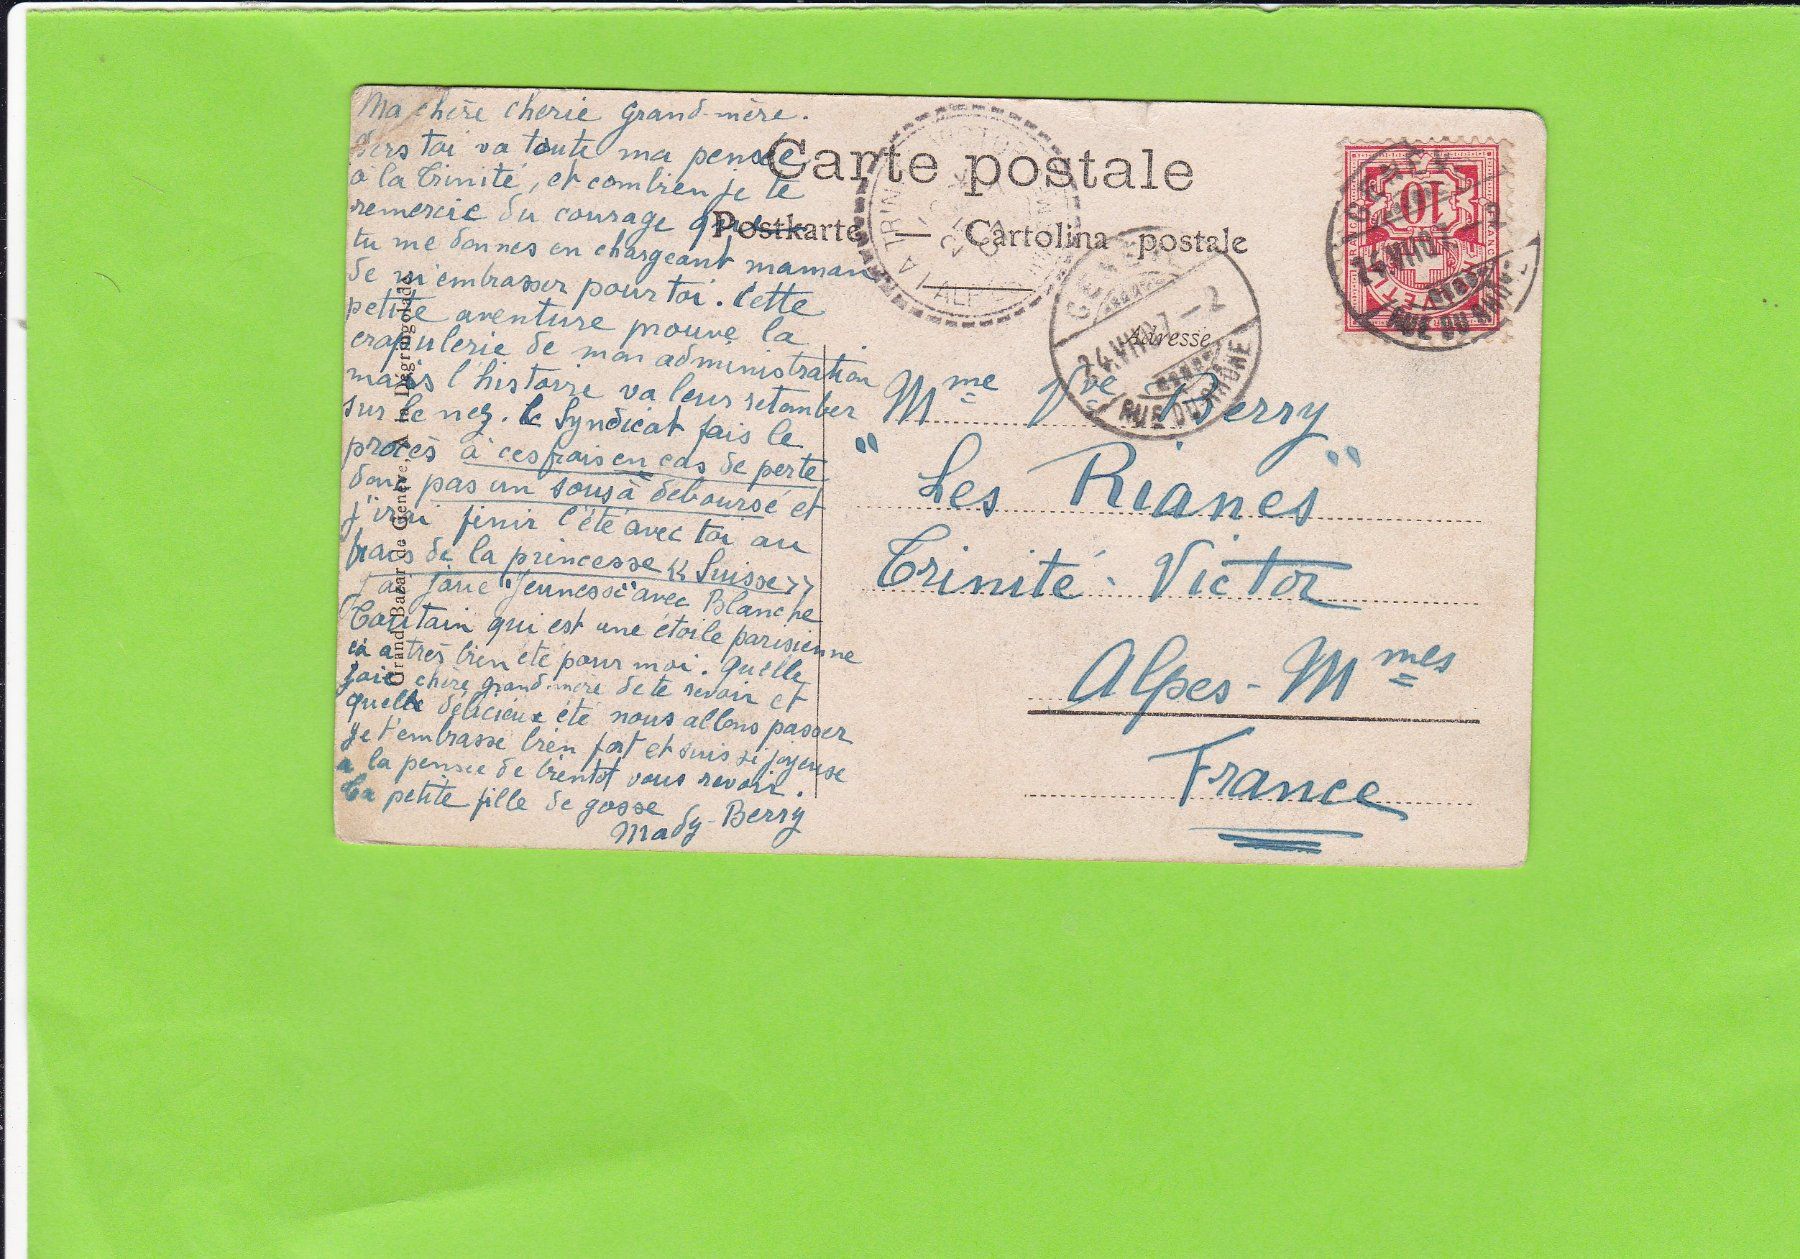 Ma chère cherie grand-mère.
Vers toi va toute ma pensée
à la Trinité, et combien je te
remercie du courage que
tu me donnes en chargeant maman
de m'embrasser pour toi. Cette
petite aventure prouve la
crapulerie de mon administration
mais l'histoire va leur retomber
sur le nez. Le Syndicat fais le
procès à ces frais en cas de perte
donc pas un sous à déboursé et
j'irai finir l'été avec toi au
frais de la princesse << Suisse >>
J'ai joué "Jeunesse" avec Blanche
Toutain qui est une étoile parisienne
et a très bien été pour moi. Quelle
joie chère grand-mère de te revoir et
quelle délicieux été nous allons passer
Je t'embrasse bien fort et suis si joyeuse
a la pensée de bientot vous revoir.
Ta petite fille de gosse
Mady-Berry
Grand Bazar de Genève, A la Dégringolade
Carte postale
Postkarte — Cartolina postale
Adresse
Mme Vve Berry
"Les Rianes"
Trinité-Victor
Alpes-Mmes
France
GENÈVE
24.VII.07.-2
RUE DU RHÔNE
LA TRINITÉ VICTOR
10
HELVETIA
GENÈVE
24.VII.07.-2
RUE DU RHÔNE